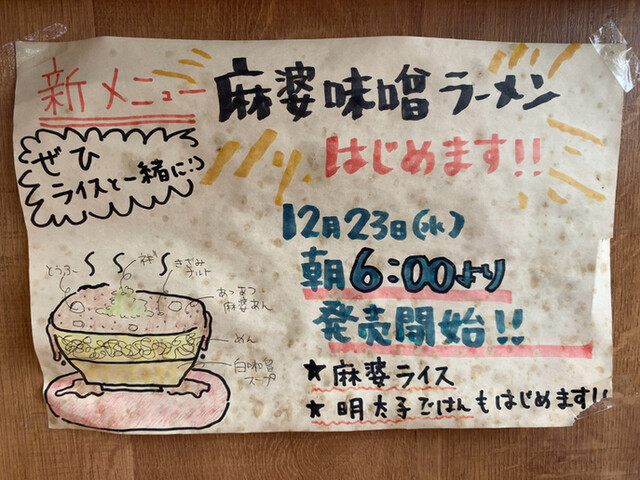 新メニュー 麻婆味噌ラーメン
はじめます!!
ぜひ
ライスと一緒に!
12月23日(水)
朝6:00より
発売開始!!
★麻婆ライス
★明太子ごはんもはじめます!!
とうふ
ネギ
きざみ
ナルト
あつあつ
麻婆あん
めん
白味噌
スープ